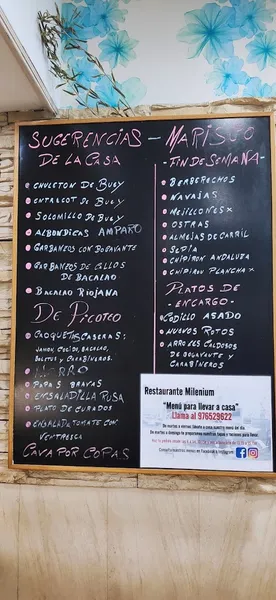 SUGERENCIAS - MARISCO
DE LA CASA
- FIN DE SEMANA -
CHULETON DE BUEY
ENTRECOT DE BUEY
SOLOMILLO DE BUEY
ALBONDIGAS AMPARO
GARBANZOS CON BOGAVANTE
GARBANZOS DE CALLOS
DE BACALAO
BACALAO RIOJANA
DE PICOTEO
CROQUETAS CASERAS:
JAMON, COCIDO, BACALAO,
BOLETUS Y CARABINEROS.
MORRO
PAPAS BRAVAS
ENSALADILLA RUSA
PLATO DE CURADOS
ENSALADA TOMATE CON
VENTRESCA
CAVA POR COPAS
BERBERECHOS
NAVAJAS
MEJILLONES X
OSTRAS
ALMEJAS DE CARRIL
SEPIA
CHIPIRON ANDALUZA
CHIPIRON PLANCHA X
PLATOS DE
- ENCARGO -
CODILLO ASADO
HUEVOS ROTOS
ARROCES CALDOSOS
DE BOGAVANTE Y
CARABINEROS
Restaurante Milenium
"Menú para llevar a casa"
Llama al 976529622
De martes a viernes llévate a casa nuestro menú del día.